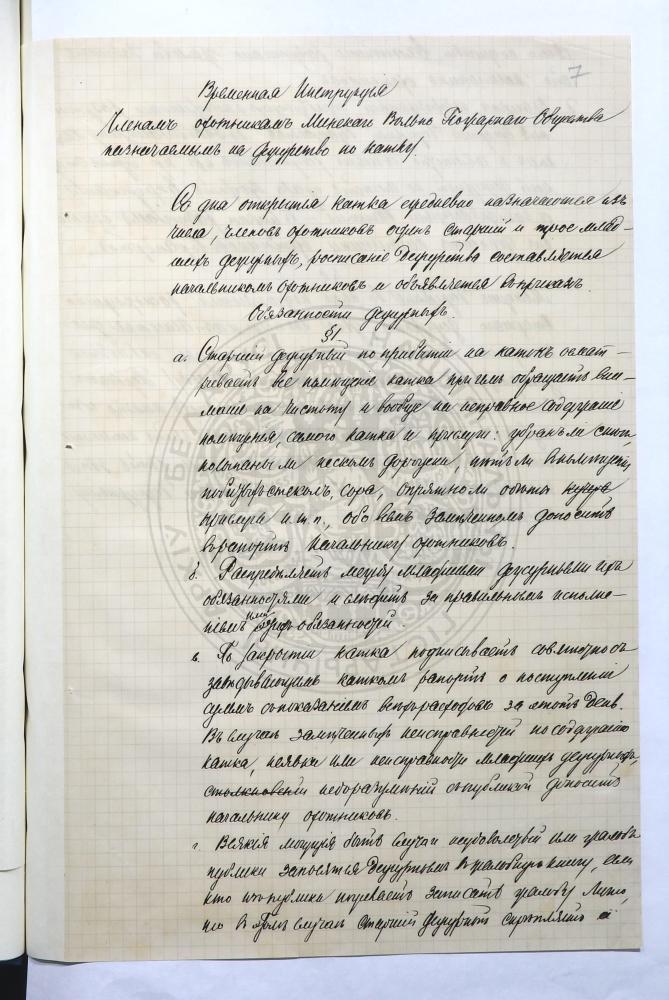 7
Временная Инструкція
Членамъ охотникамъ Минскаго Вольно Пожарнаго Общества
назначаемымъ на дежурство по катку.
Со дня открытія катка ежедневно назначаются изъ
числа, членовъ охотниковъ одинъ старшій и трое млад-
шихъ дежурныхъ, росписаніе дежурства составляется
начальникомъ охотниковъ и объявляется въ приказѣ.
Обязанности дежурныхъ.
§1
а. Старшій дежурный по прибытіи на катокъ осмат-
риваетъ все помѣщеніе катка при чемъ обращаетъ вни-
маніе на чистоту и вообще на исправное содержаніе
помѣщенія, самого катка и прислуги: убранъ ли снѣгъ,
посыпаны ли пескомъ дорожки, нѣтъ ли въ помѣщеніи
побитыхъ стеколъ, сора, опрятно ли одѣты
прислуга и т. п., обо всемъ замѣченномъ доноситъ
въ рапортѣ Начальнику охотниковъ.
б. Распредѣляетъ между младшими дежурными ихъ
обязанностями и слѣдитъ за правильнымъ исполне-
ніемъ ими обязанностей.
в. По закрытіи катка подписываетъ совмѣстно съ
завѣдывающимъ каткомъ рапортъ о поступленіи
суммъ съ показаніемъ всѣхъ расходовъ за этотъ день.
Въ случаѣ замѣченныхъ неисправностей по содержанію
катка, неявки или неисправности младшихъ дежурныхъ,
столкновеній недоразумѣній съ публикой доноситъ
начальнику охотниковъ.
г. Всякія могущія быть случаи неудовольствій или жалобъ
публики заносятся дежурнымъ въ жалобную книгу, если
кто изъ публики пожелаетъ записать жалобу лично,
то въ этомъ случаѣ старшій дежурный скрѣпляетъ